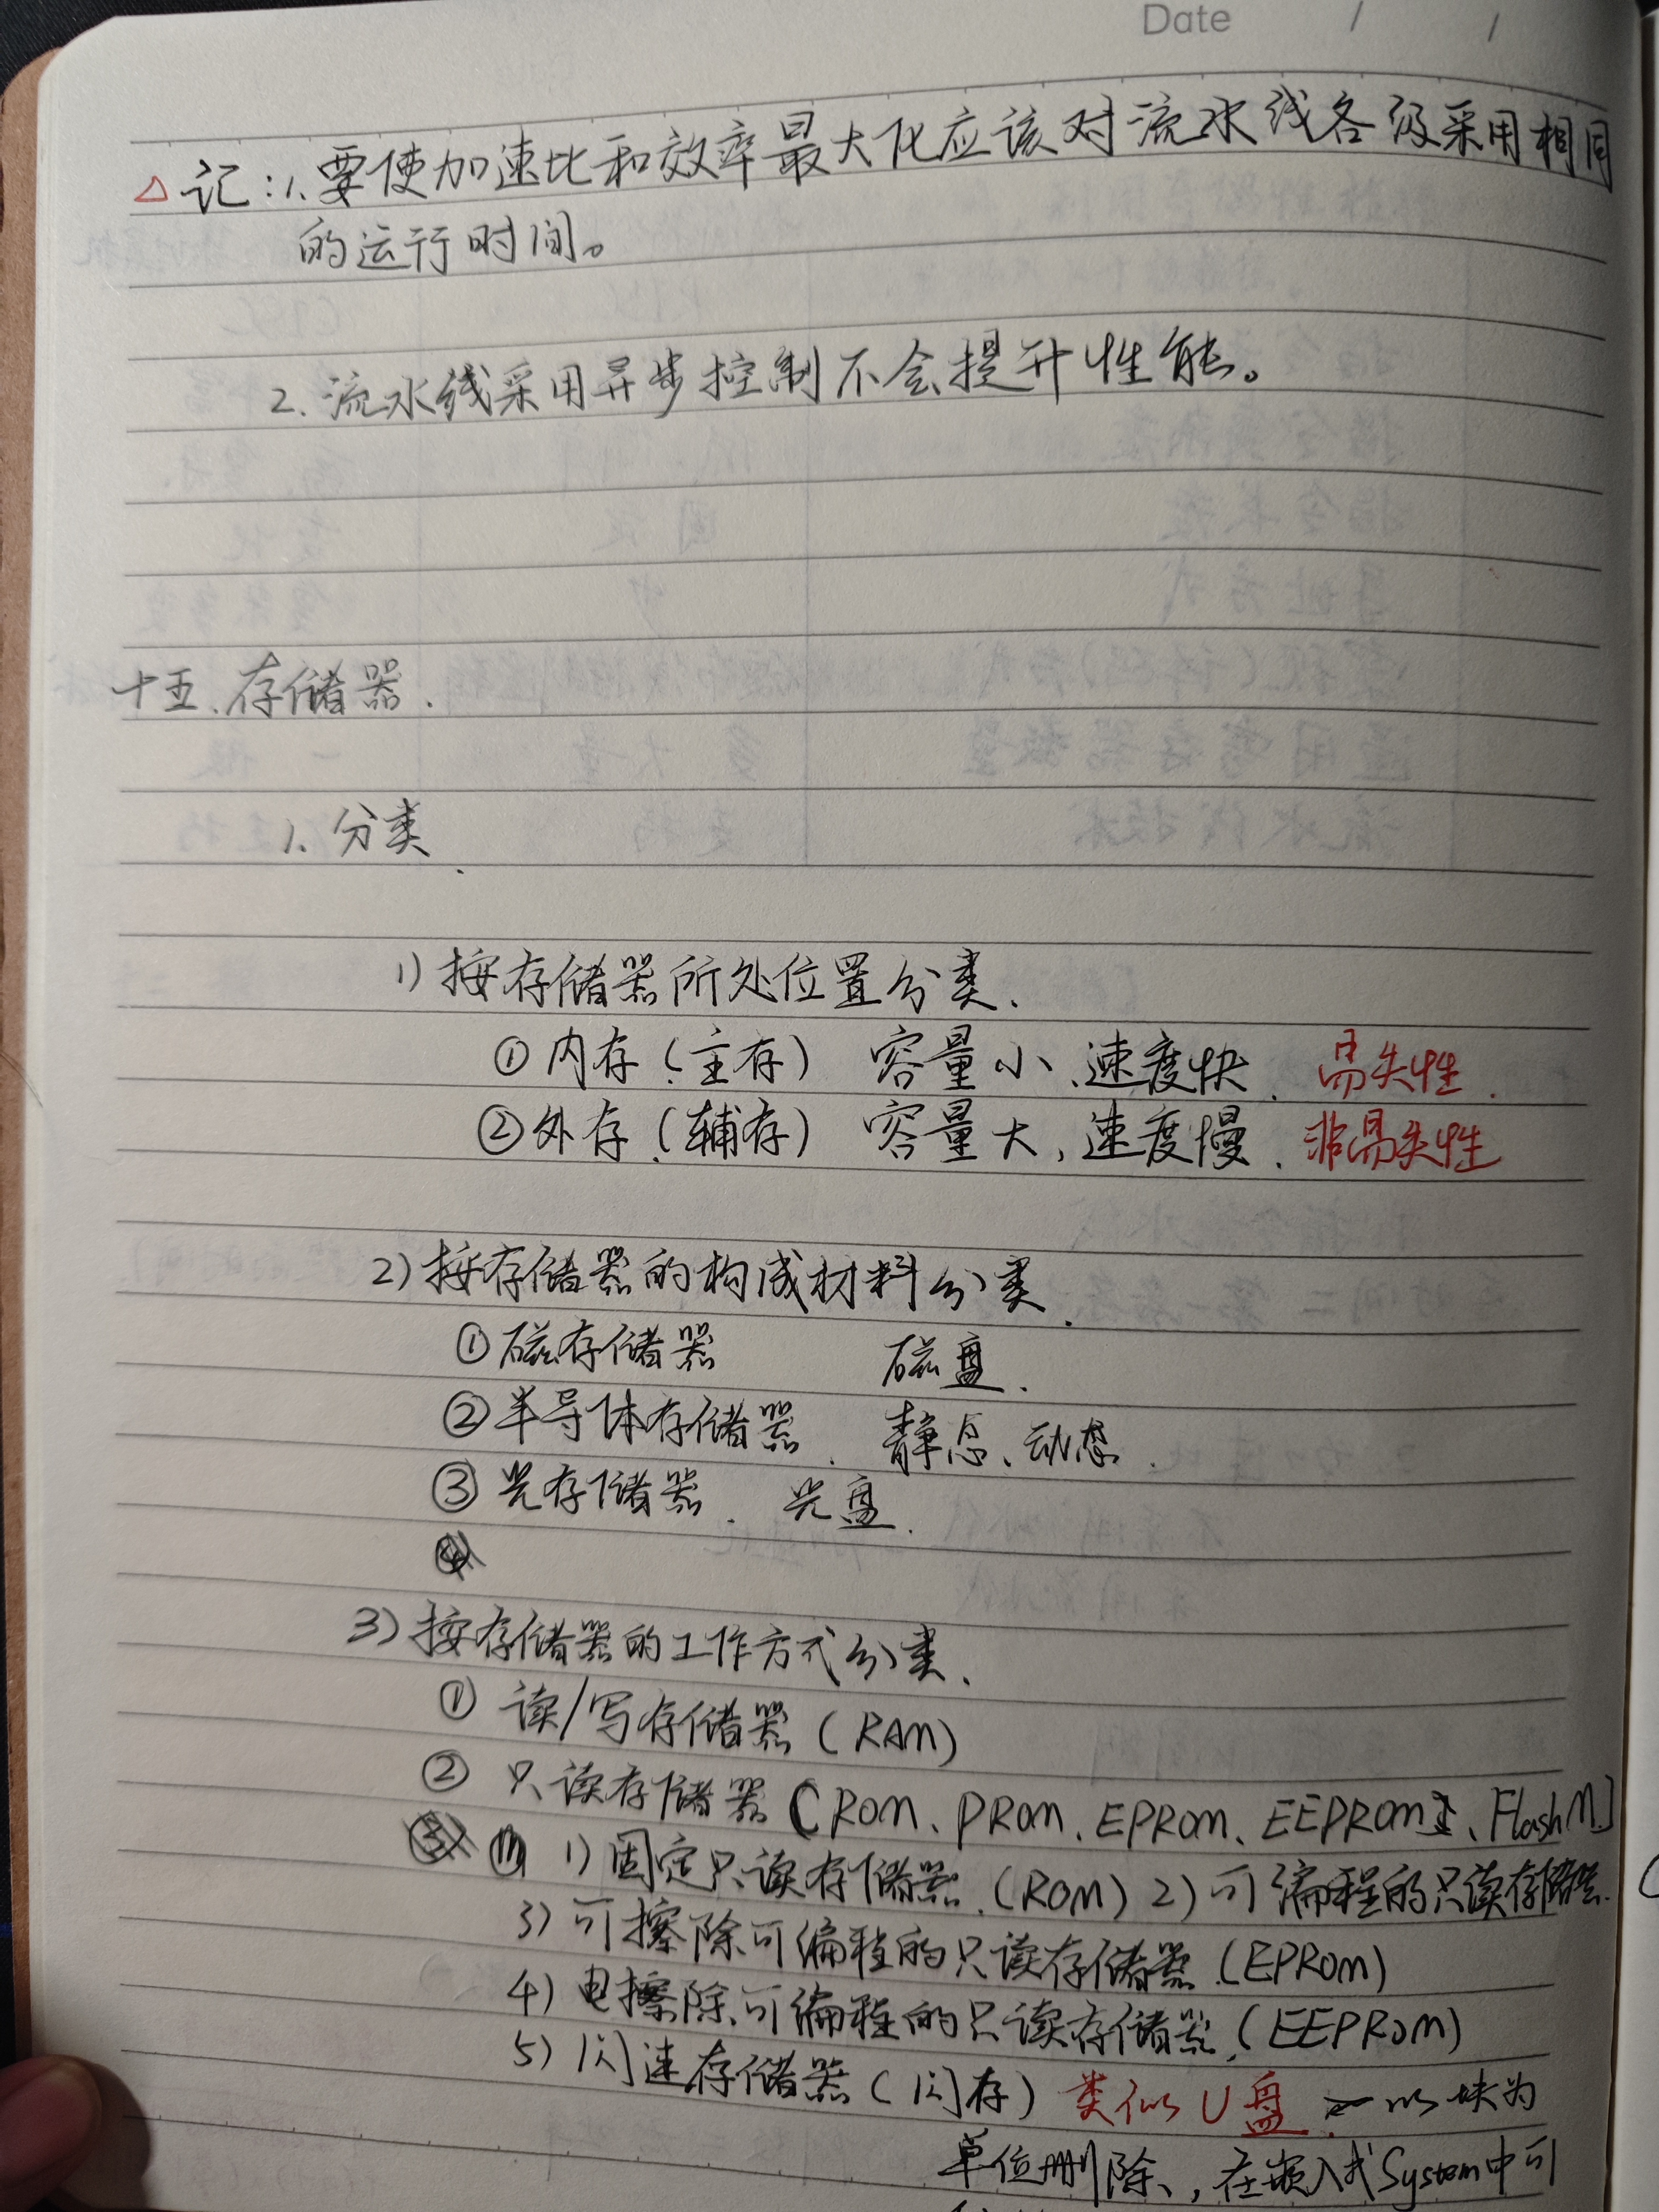 Date / /
△ 记:1.要使加速比和效率最大化应该对流水线各级采用相同
的运行时间。
2.流水线采用异步控制不会提升性能。
十五.存储器.
1.分类.
1)按存储器所处位置分类.
①内存(主存) 容量小、速度快. 易失性.
②外存(辅存) 容量大,速度慢. 非易失性
2)按存储器的构成材料分类.
①磁存储器 磁盘.
②半导体存储器. 静态、动态.
③光存储器. 光盘.
3)按存储器的工作方式分类.
① 读/写存储器(RAM)
② 只读存储器(ROM、PROM、EPROM、EEPROM、Flash M.)
1)固定只读存储器.(ROM) 2)可编程的只读存储器.
3)可擦除可编程的只读存储器(EPROM)
4)电擦除可编程的只读存储器.(EEPROM)
5)闪速存储器(闪存) 类似U盘. 以块为
单位删除、,在嵌入式System中可